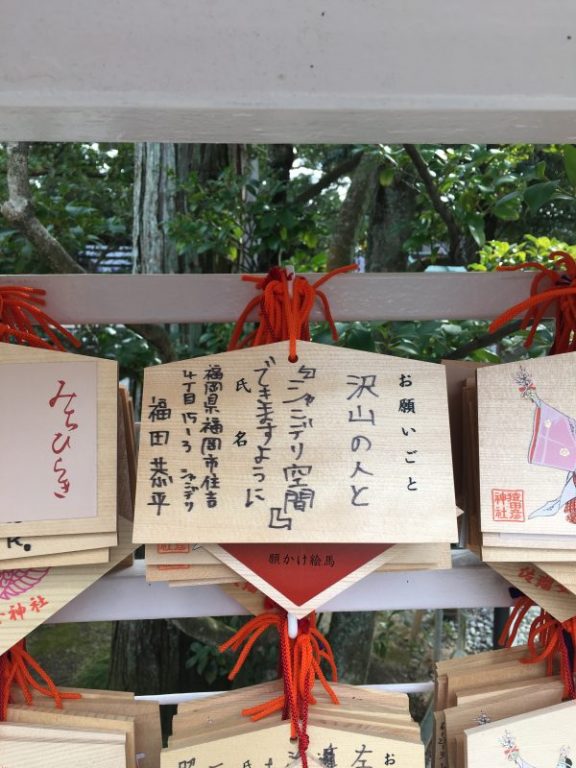 お願いごと
沢山の人と
『シャンデリ空間』
できますように
氏名
福岡県福岡市住吉
4丁目15-3 シャンデリ
福田 恭平
願かけ絵馬
みちひらき
猿田彦
神社
神社
お
左
氏